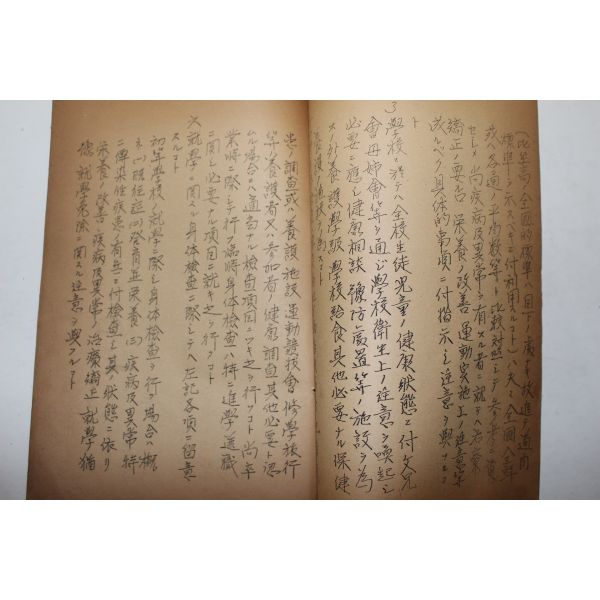 標準ヲ示スベキニ付利用スルコト)ハ夫々全國
或ハ各道ノ平均數等ト比較對照シテ參考ニ資
セシメ尚疾病及異常ヲ有スル者ニ就テハ治療
矯正ノ要否、栄養ノ改善、運動実施上ノ注意等
成ルベク具体的事項ニ付指示シ注意ヲ與フルコ
ト
3 學校ニ於テハ全校生徒児童ノ健康狀態ニ付父兄
會母姉會等ヲ通ジ學校衛生上ノ注意ヲ喚起シ
必要ニ應ジ健康相談、豫防處置等ノ施設ヲ為
シ養護學級、學校給食其他必要ナル保健
養護ノ施設ヲ為スコト
患ノ調査或ハ養護施設、運動競技會、修學旅行
等ノ養護者又ハ参加者ノ健康調査其他必要ト認
ムル場合ハ適當ナル検査項目ニツキ之ヲ行フコト尚卒
業時ニ際シテ行フ臨時身体検査ハ特ニ進學、選職
ニ関シ必要ナル項目ニ就キ之ヲ行フコト
六、就學ニ関スル身体検査ニ際シテハ左記各項ニ留意
スルコト
初等學校ノ就學ニ際シ身体検査ヲ行フ場合ハ概
ネ(一)既往症(二)發育並栄養(三)疾病及異常特
ニ傳染性疾患ノ有無ニ付検査シ其ノ狀態ニ依リ
栄養ノ改善、疾病及異常ノ治療矯正、就學猶
豫、就學免除ニ関スル注意ヲ與フルコト